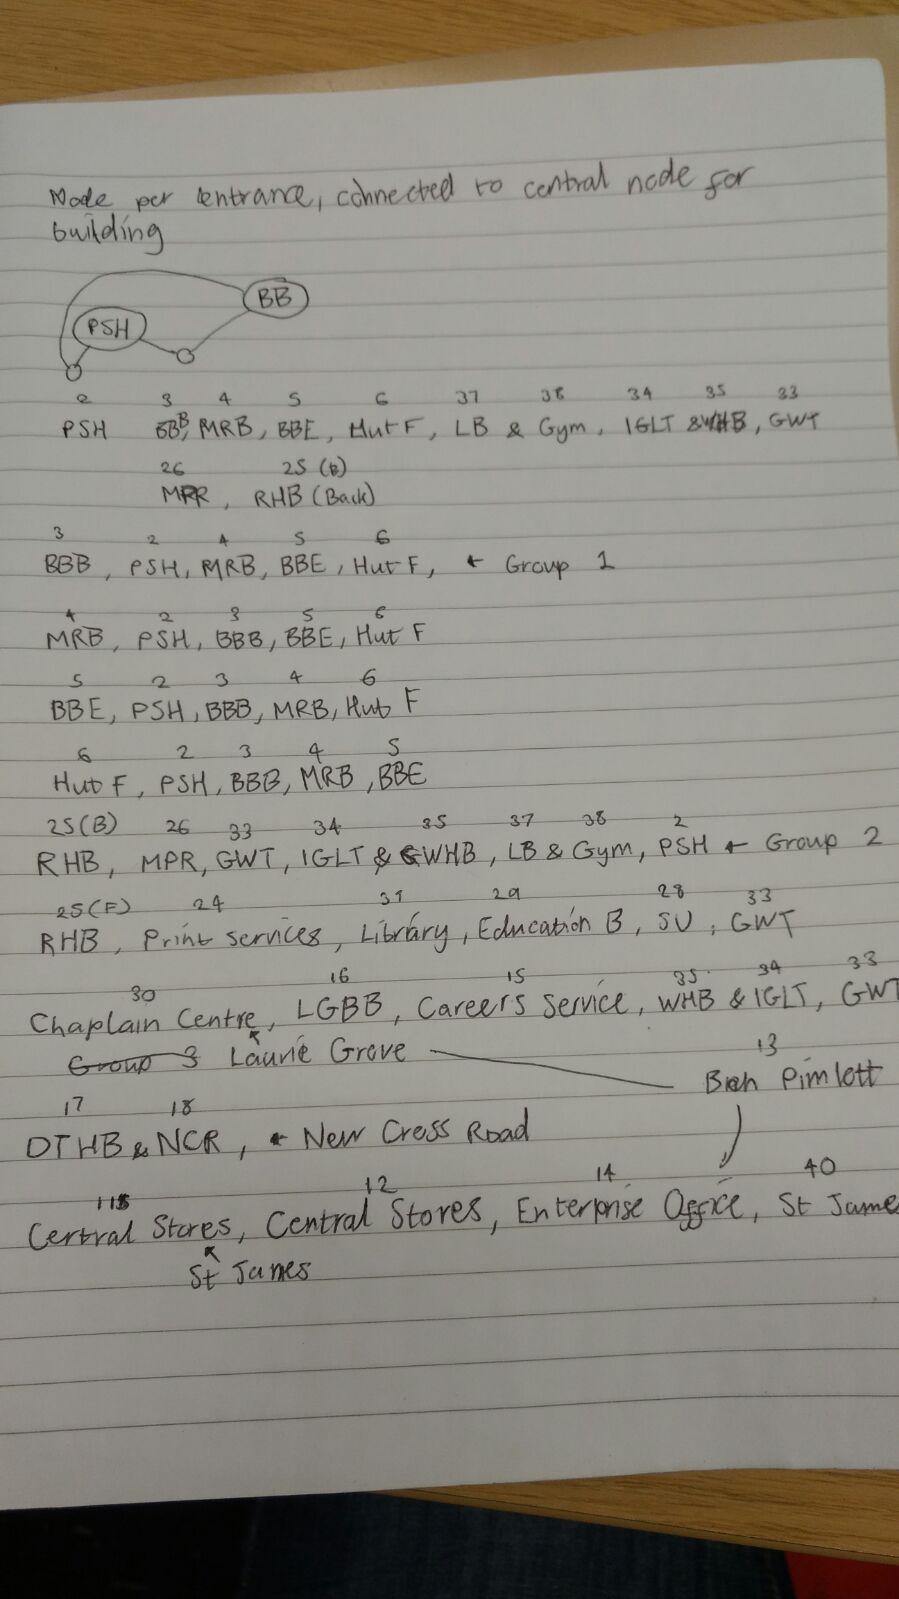 Node per entrance, connected to central node for
building
BB
PSH
2 3 4 5 6 37 38 34 35 33
PSH BBB, MRB, BBE, Hut F, LB & Gym, IGLT & WHB, GWT
26 25 (B)
MPR, RHB (Back)
3 2 4 5 6
BBB, PSH, MRB, BBE, Hut F, ← Group 1
4 2 3 5 6
MRB, PSH, BBB, BBE, Hut F
5 2 3 4 6
BBE, PSH, BBB, MRB, Hut F
6 2 3 4 5
Hut F, PSH, BBB, MRB, BBE
25(B) 26 33 34 35 37 38 2
RHB, MPR, GWT, IGLT & WHB, LB & Gym, PSH ← Group 2
25(F) 24 31 29 28 33
RHB, Print services, Library, Education B, SU, GWT
30 16 15 35 34 33
Chaplain Centre, LGBB, Careers Service, WHB & IGLT, GWT
Group 3 Laurie Grove
13
Ben Pimlott
17 18
DTHB & NCR, ← New Cross Road
12 14 40
Central Stores, Central Stores, Enterprise Office, St Jame
St James